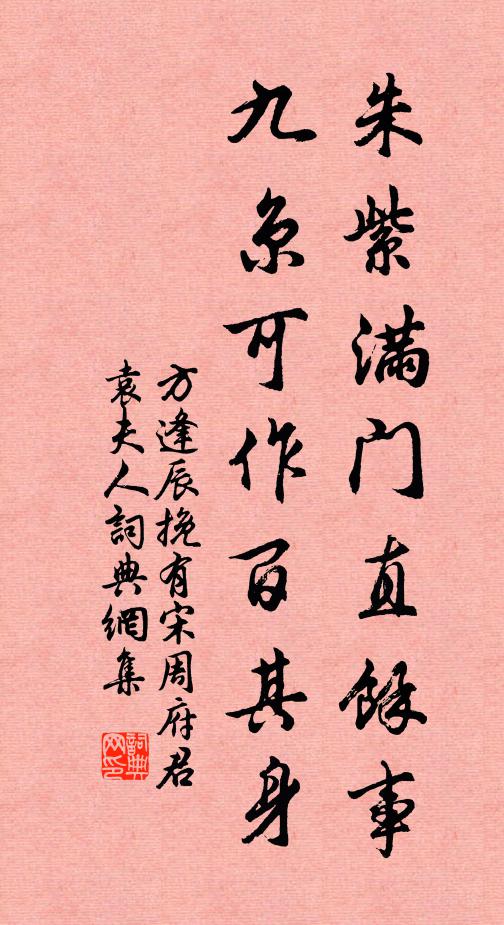 朱紫滿門直餘事
九京可作百其身
方逢辰挽有宋周府君
袁夫人詞典網集
詞典网印